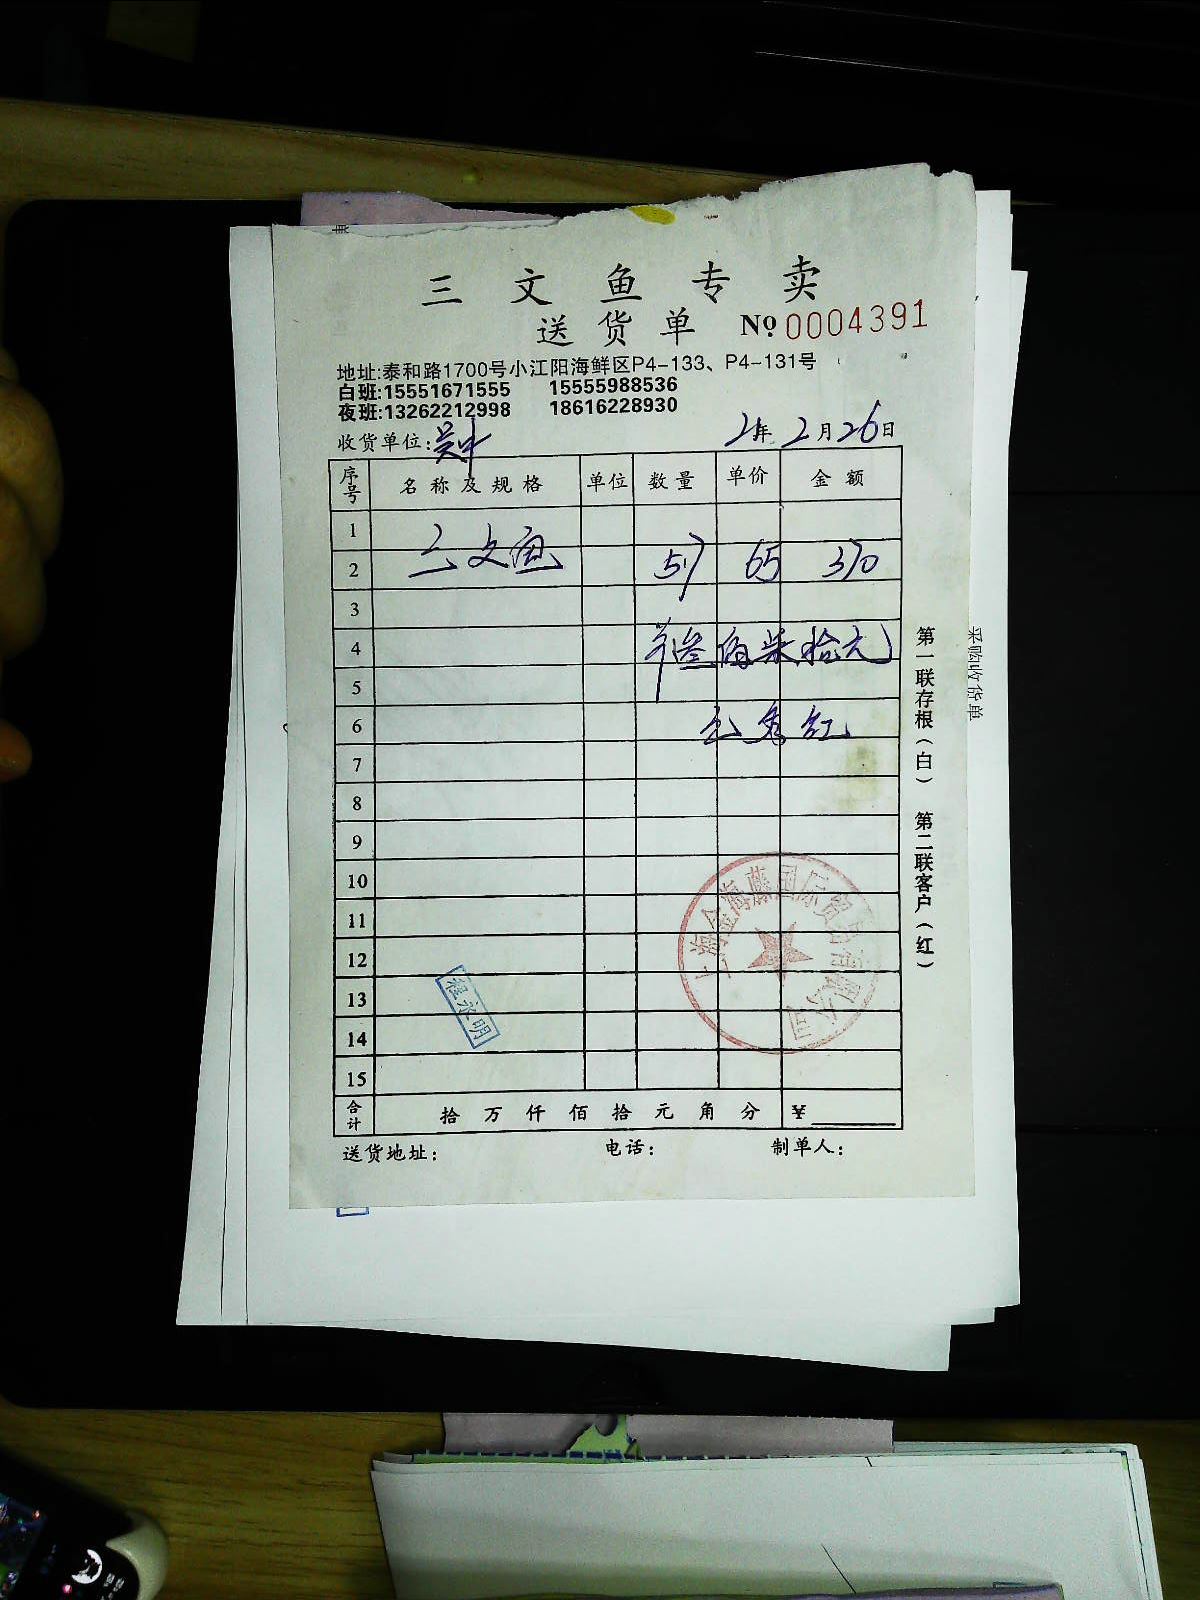 三文鱼专卖
送货单 № 0004391
地址:泰和路1700号小江阳海鲜区P4-133、P4-131号
白班:15551671555 15555988536
夜班:13262212998 18616228930
收货单位:吴中 21年2月26日
序号 名称及规格 单位 数量 单价 金额
1
2 三文鱼 5.7 65 370
3
4 叁佰柒拾元
5
6 秀红
7
8
9
10
11
12
13
14
15
上海金海藤国际贸易有限公司
程永明
合计 拾万仟佰拾元角分 ¥
送货地址: 电话: 制单人:
第一联存根(白) 第二联客户(红)
采购收货单